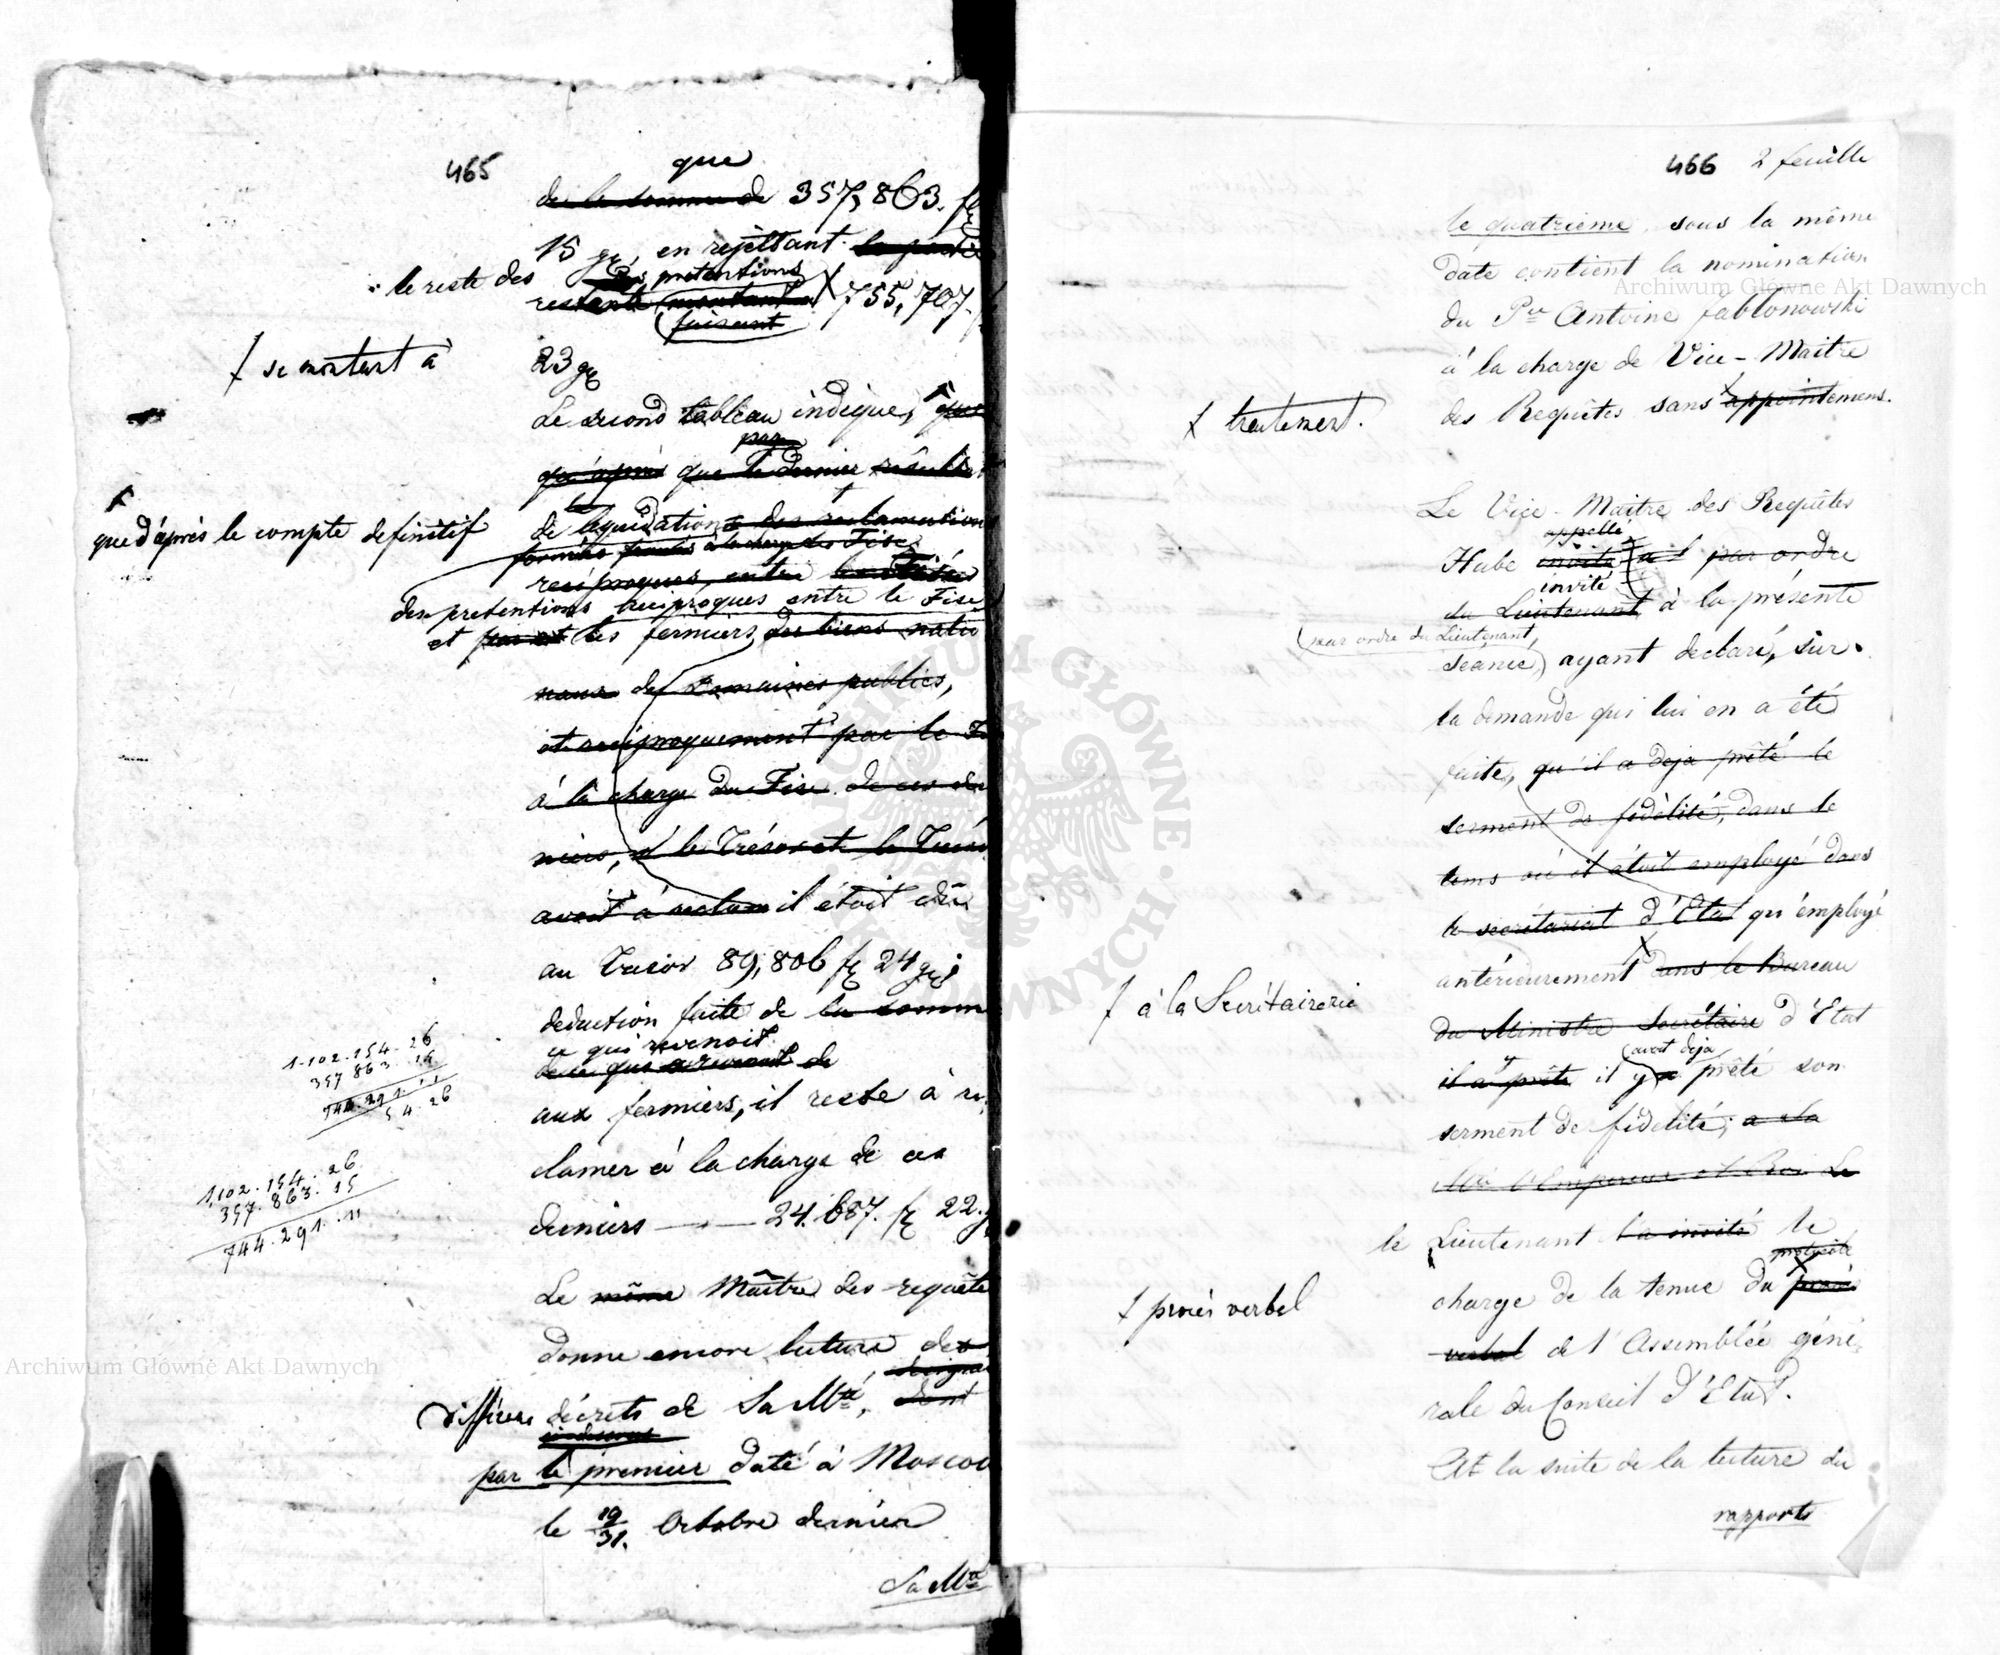 465
que
de la somme de 357,863. fl
15 gr, en rejettant la partie
le reste des
pretentions
restante montant 755,707.
faisant
f se montant à
23 gr
Le second tableau indique, que
par
qu'après que le dernier résultat
que d'après le compte definitif
de liquidation des reclamations
formées à la charge du Fisc
reciproques, entre
des pretentions reciproques entre le Fisc
et par et les fermiers des biens natio
naux des domaines publics,
et reciproquement par le
à la charge du Fisc de ces der
niers, le Trésor et le Trésor
avoit à reclam il étoit dû
au Tresor 89,806 fl 24 gr;
deduction faite de la somm
ce qui revenoit
de ce qui revenoit de
aux fermiers, il reste à re-
clamer à la charge de ces
derniers — 24.687. fl 22. g
1.102.154.26
357 863. 15
744.291.11
5 4.26
1,102.154.26
357.863.15
744.291.11
Le même Maître des requête
donne encore lecture des
differens décrets de Sa Mté, dont
ci-dessous
par le premier daté à Moscou
le 19/31. Octobre dernier
Sa Mté
466 2 feuille
le quatrieme, sous la même
date contient la nomination
du Pce Antoine Jabłonowski
à la charge de Vice-Maitre
des Requêtes sans appointemens.
f traitement.
Le Vice-Maitre des Requêtes
appellé
Hube invité par ordre
invité
du Lieutenant à la présente
par ordre du Lieutenant,
séance, ayant declaré, sur
la demande qui lui en a été
faite, qu'il a deja prêté le
serment de fidélité, dans le
tems où il étoit employé dans
le secrétariat d'Etat qu'employé
antérieurement dans le Bureau
f à la Secrétairerie
du Ministre Secrétaire d'Etat
avoit deja
il a prêté il y a prêté son
serment de fidelité; a sa
Mté l'Empereur et Roi Le
le Lieutenant l'a invité le
protocole
charge de la tenue du procès
f procès verbal
verbal de l'Assemblée géné-
rale du Conseil d'Etat.
At la suite de la lecture du
rapports
Archiwum Główne Akt Dawnych
Archiwum Główne Akt Dawnych
ARCHIWUM GŁÓWNE AKT DAWNYCH